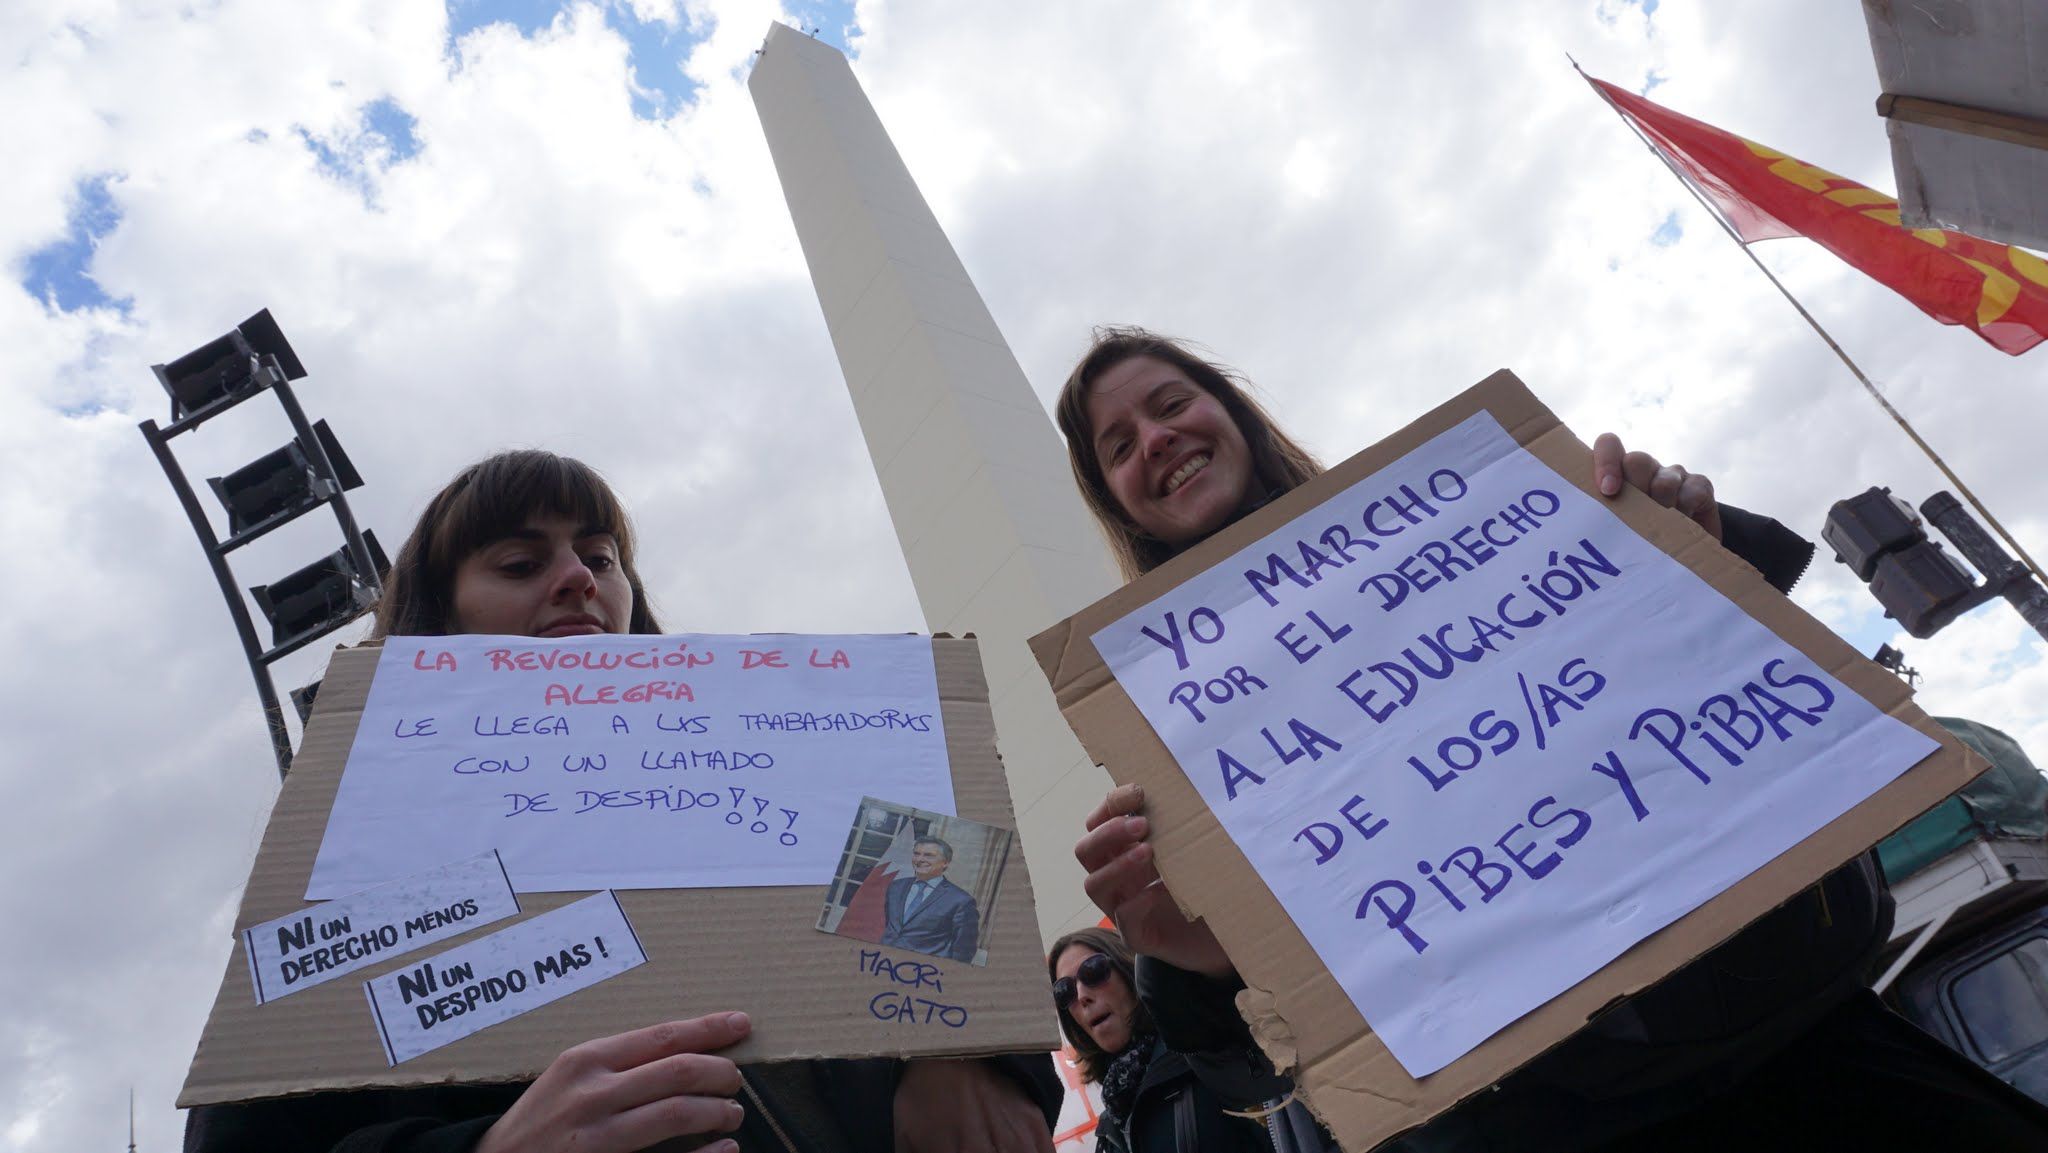 LA REVOLUCIÓN DE LA
ALEGRiA
LE LLEGA A LXS TRABAJADORXS
CON UN LLAMADO
DE DESPiDO!!!
NI UN
DERECHO MENOS
NI UN
DESPIDO MAS!
MACRi
GATO
YO MARCHO
POR EL DERECHO
A LA EDUCACIÓN
DE LOS/AS
PiBES Y PiBAS